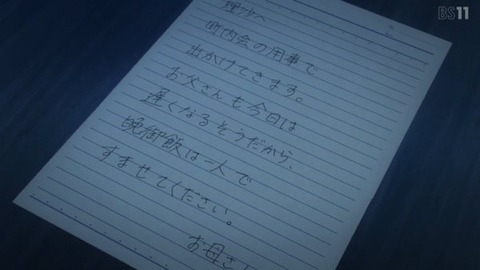 BS11
理沙へ
町内会の用事で
出かけてきます。
お父さんも今日は
遅くなるそうだから、
晩御飯は一人で
すませてください。
お母さ